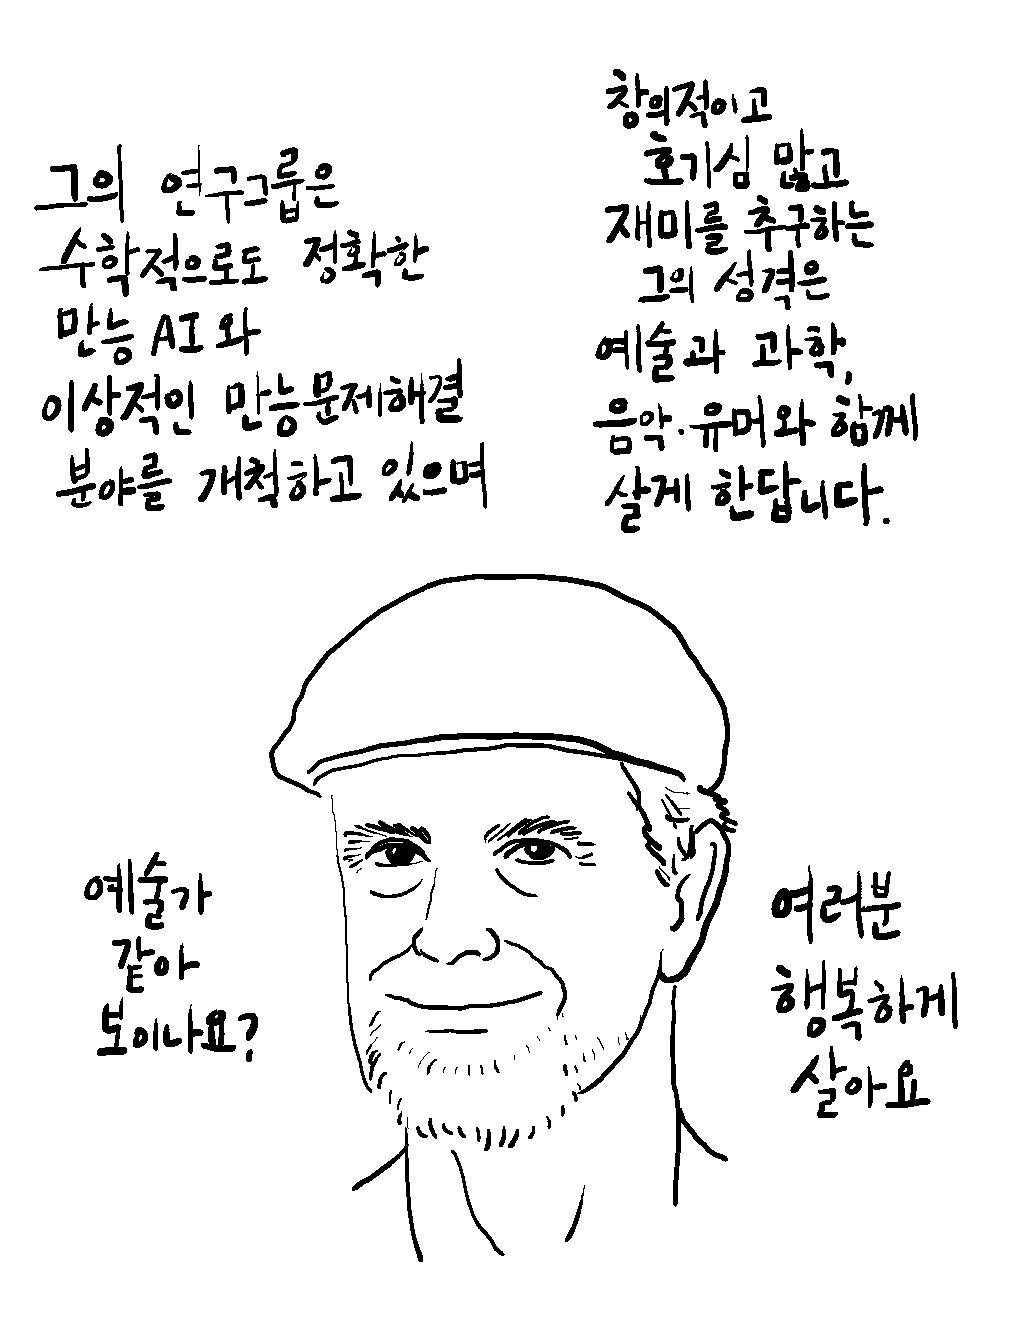 그의 연구그룹은
수학적으로도 정확한
만능 AI와
이상적인 만능문제해결
분야를 개척하고 있으며
창의적이고
호기심 많고
재미를 추구하는
그의 성격은
예술과 과학,
음악·유머와 함께
살게 한답니다.
예술가
같아
보이나요?
여러분
행복하게
살아요